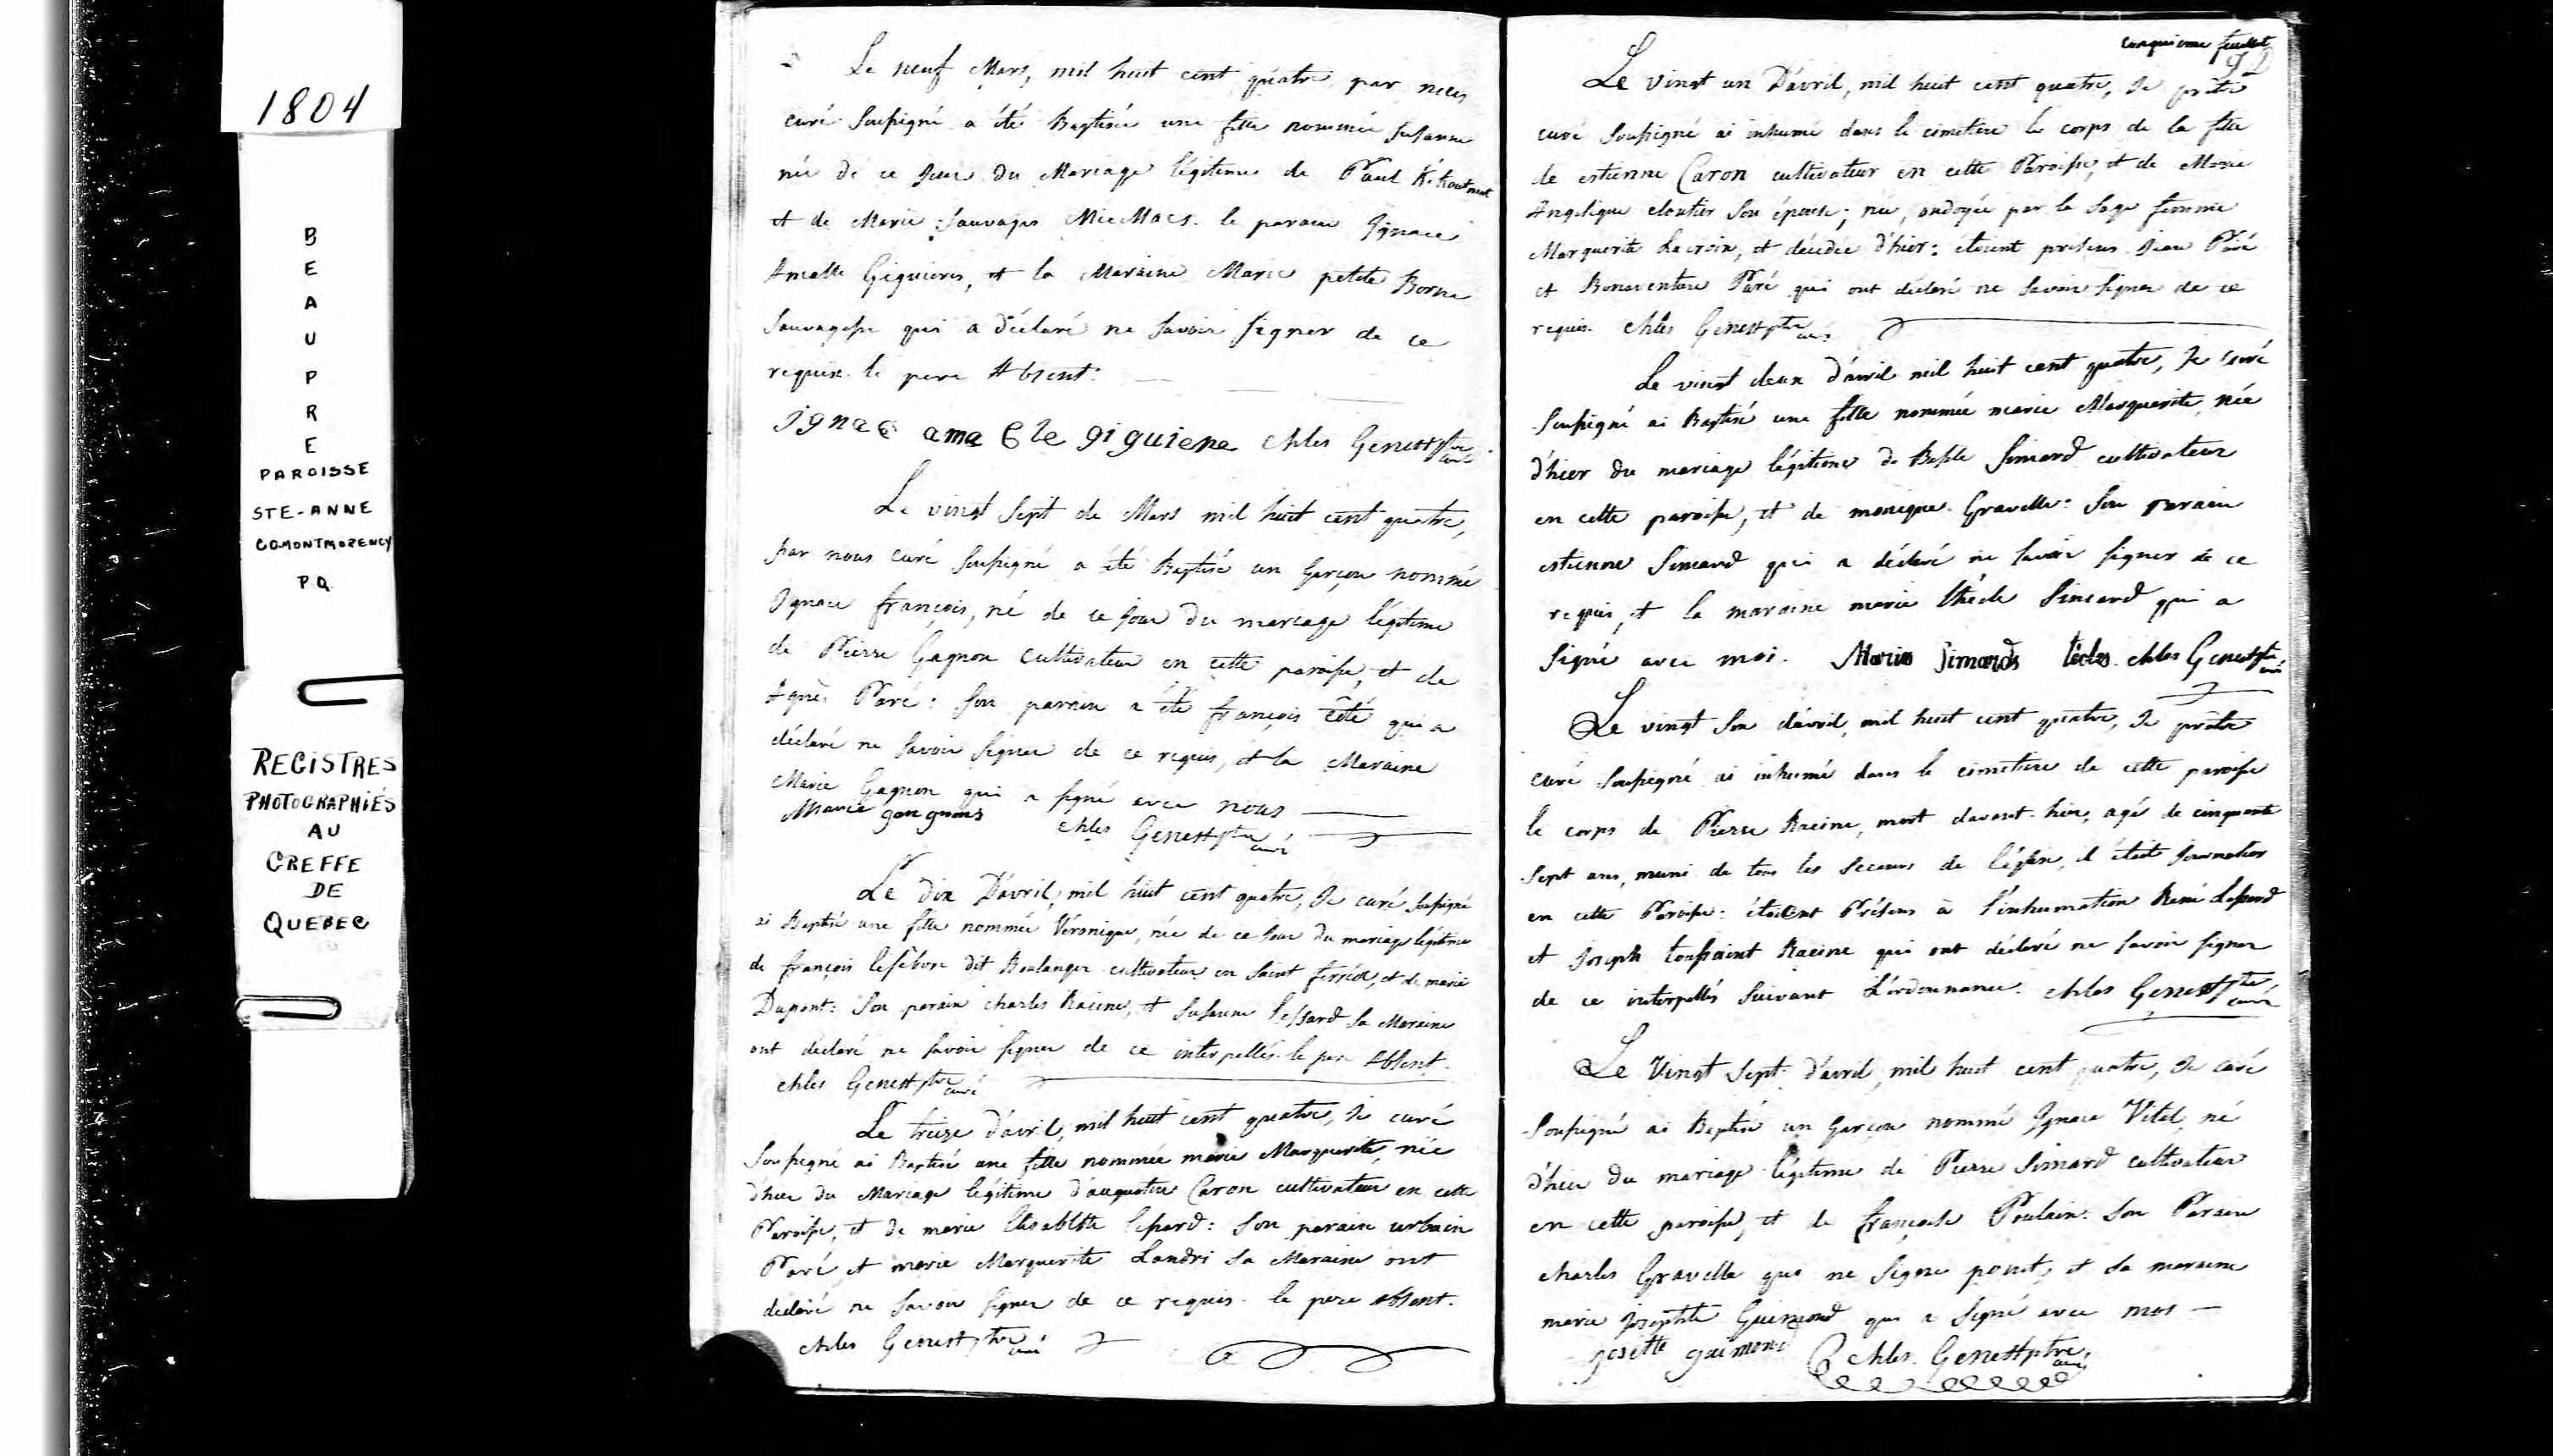 1804
B
E
A
U
P
R
E
PAROISSE
STE-ANNE
CO MONTMORENCY
P Q
REGISTRES
PHOTOGRAPHIÉS
AU
GREFFE
DE
QUEBEC
Le neuf Mars, mil huit cent quatre par nous
curé Soussigné a été Baptisée une fille nommée Susanne
née de ce jour du Mariage légitime de Paul
et de Marie Sauvages MicMacs. le parain Ignace
Amable Giguieres, et la Maraine Marie petite Borne
Sauvagesse qui a déclaré ne savoir signer de ce
requise. le pere Absent.
ignac ama ble giguiere chles Genest ptre curé
Le vingt sept de Mars mil huit cent quatre,
par nous curé soussigné a été Baptisé un Garçon nommé
Ignace françois, né de ce jour du mariage légitime
de Pierre Gagnon cultivateur en cette paroisse, et de
Agnès Paré: son parain a été françois Côté qui a
déclaré ne savoir signer de ce requis, et la Maraine
Marie Gagnon qui a signé avec nous
Marie gangnons chles Genest ptre curé
Le dix D'avril, mil huit cent quatre, Je curé soussigné
ai Baptisé une fille nommée Véronique, née de ce jour du mariage légitime
de françois lefebvre dit Boulanger cultivateur en Saint ferréol, et de marie
Dupont: Son parain charles Racine, et Susanne lessard sa Maraine
ont déclaré ne savoir signer de ce interpellés. le pere Absent.
chles Genest ptre curé
Le treize d'avril, mil huit cent quatre, Je curé
Soussigné ai Baptisé une fille nommée marie Marguerite, née
d'hier du Mariage légitime d'augustin Caron cultivateur en cette
Paroisse, et de marie Elisabette lessard: Son parain urbain
Paré et marie Marguerite Landri sa Maraine ont
déclaré ne savoir signer de ce requis. le pere absent.
chles Genest ptre curé
cinquieme feuillet
Le vingt un D'avril, mil huit cent quatre, Je prêtre
curé soussigné ai inhumé dans le cimetiere le corps de la fille
de estienne Caron cultivateur en cette Paroisse, et de Marie
Angelique cloutier son épouse; née, ondoyée par la sage femme
Marguerite Lacroix, et décédée d'hier: étoient presens Jean Paré
et Bonaventure Paré qui ont déclaré ne savoir signer de ce
requis. chles Genest ptre curé
Le vingt deux d'avril mil huit cent quatre, Je curé
Soussigné ai Baptisé une fille nommée marie Marguerite, née
d'hier du mariage légitime de Basile Simard cultivateur
en cette paroisse, et de monique Gravelle: Son parain
estienne Simard qui a déclaré ne savoir signer de ce
requis, et la maraine marie thécle Simard qui a
signé avec moi. Marie Simards técles chles Genest ptre curé
Le vingt six d'avril, mil huit cent quatre, Je prêtre
curé soussigné ai inhumé dans le cimetiere de cette paroisse
le corps de Pierre Racine, mort davant-hier, agé de cinquante
sept ans, muni de tous les secours de l'église, il étoit journalier
en cette Paroisse: étoient Présens à l'inhumation René Lessard
et Joseph toussaint Racine qui ont déclaré ne savoir signer
de ce interpellés suivant L'ordonnance. chles Genest ptre curé
Le Vingt sept d'avril, mil huit cent quatre, Je curé
Soussigné ai Baptisé un Garçon nommé Ignace Vital, né
d'hier du mariage légitime de Pierre Simard cultivateur
en cette paroisse, et de françoise Poulain: Son Parain
charles Gravelle qui ne signe point, et sa maraine
marie Josephte Guimond qui a signé avec moi
josette guimond chles Genest ptre curé